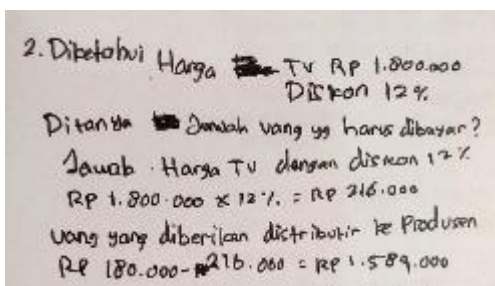 2. Diketahui Harga TV RP 1.800.000
Diskon 12%
Ditanya Jumlah uang yg harus dibayar?
Jawab. Harga TV dengan diskon 12%
RP 1.800.000 x 12% = RP 216.000
uang yang diberikan distributir ke Produsen
RP 180.000 - 216.000 = RP 1.589.000